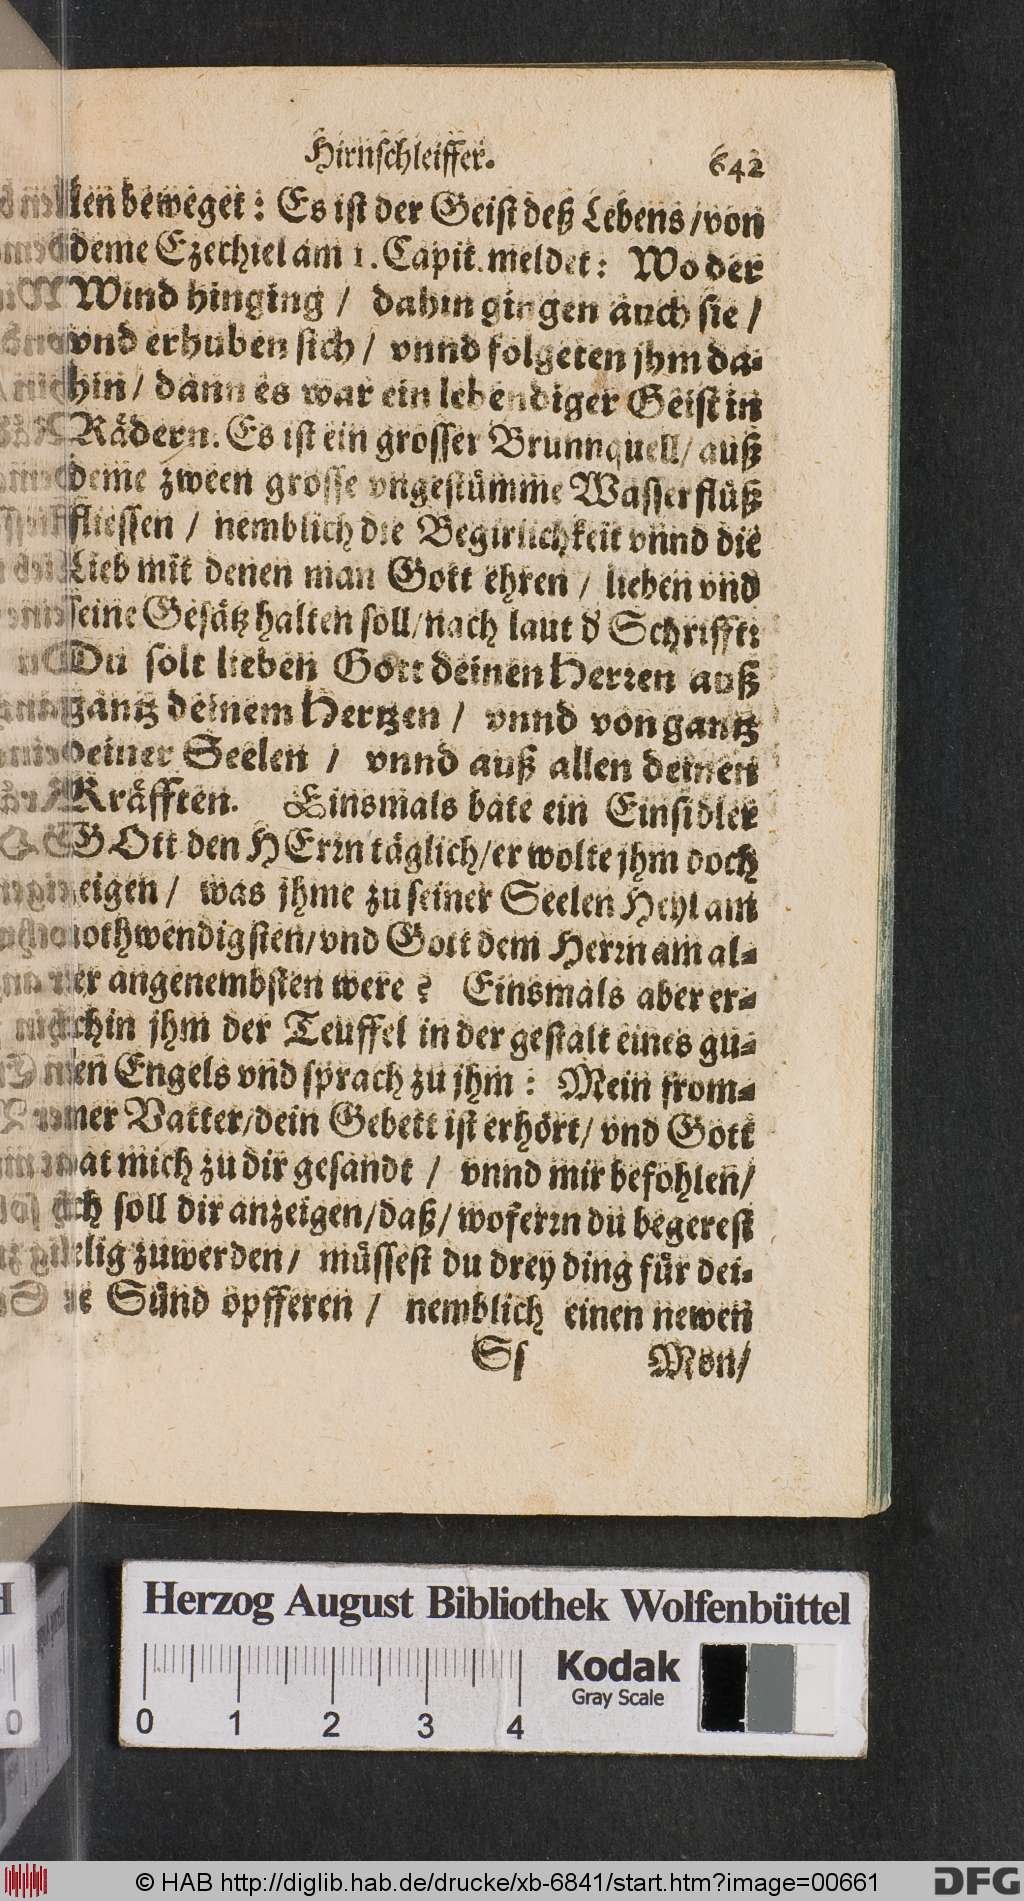 Hirnschleiffer. 642
len beweget: Es ist der Geist deß Lebens/von
deme Ezechiel am 1. Capit. meldet: Wo der
Wind hinging / dahin gingen auch sie /
vnd erhuben sich / vnnd folgeten jhm da-
hin / dann es war ein lebendiger Geist in
Rädern. Es ist ein grosser Brunnquell/ auß
deme zween grosse vngestümme Wasserflüß
fliessen / nemblich die Begirlichkeit vnnd die
Lieb mit denen man Gott ehren / lieben vnd
seine Gesätz halten soll/nach laut d Schrifft:
Du solt lieben Gott deinen Herren auß
gantz deinem Hertzen / vnnd von gantz
deiner Seelen / vnnd auß allen deinen
Kräfften. Einsmals bate ein Einsidler
GOtt den HErrn täglich/er wolte jhm doch
eigen / was jhme zu seiner Seelen Heyl am
nothwendigsten/vnd Gott dem Herrn am al-
ler angenembsten were? Einsmals aber er-
schin jhm der Teuffel in der gestalt eines gu-
ten Engels vnd sprach zu jhm: Mein from-
mer Vatter/dein Gebett ist erhört/ vnd Gott
hat mich zu dir gesandt / vnnd mir befohlen/
ich soll dir anzeigen/daß/ woferrn du begerest
selig zuwerden/ müssest du drey ding für dei-
ne Sünd opfferen / nemblich einen newen
Ss Mon/
Herzog August Bibliothek Wolfenbüttel
Kodak
Gray Scale
0 1 2 3 4
0
© HAB http://diglib.hab.de/drucke/xb-6841/start.htm?image=00661
DFG